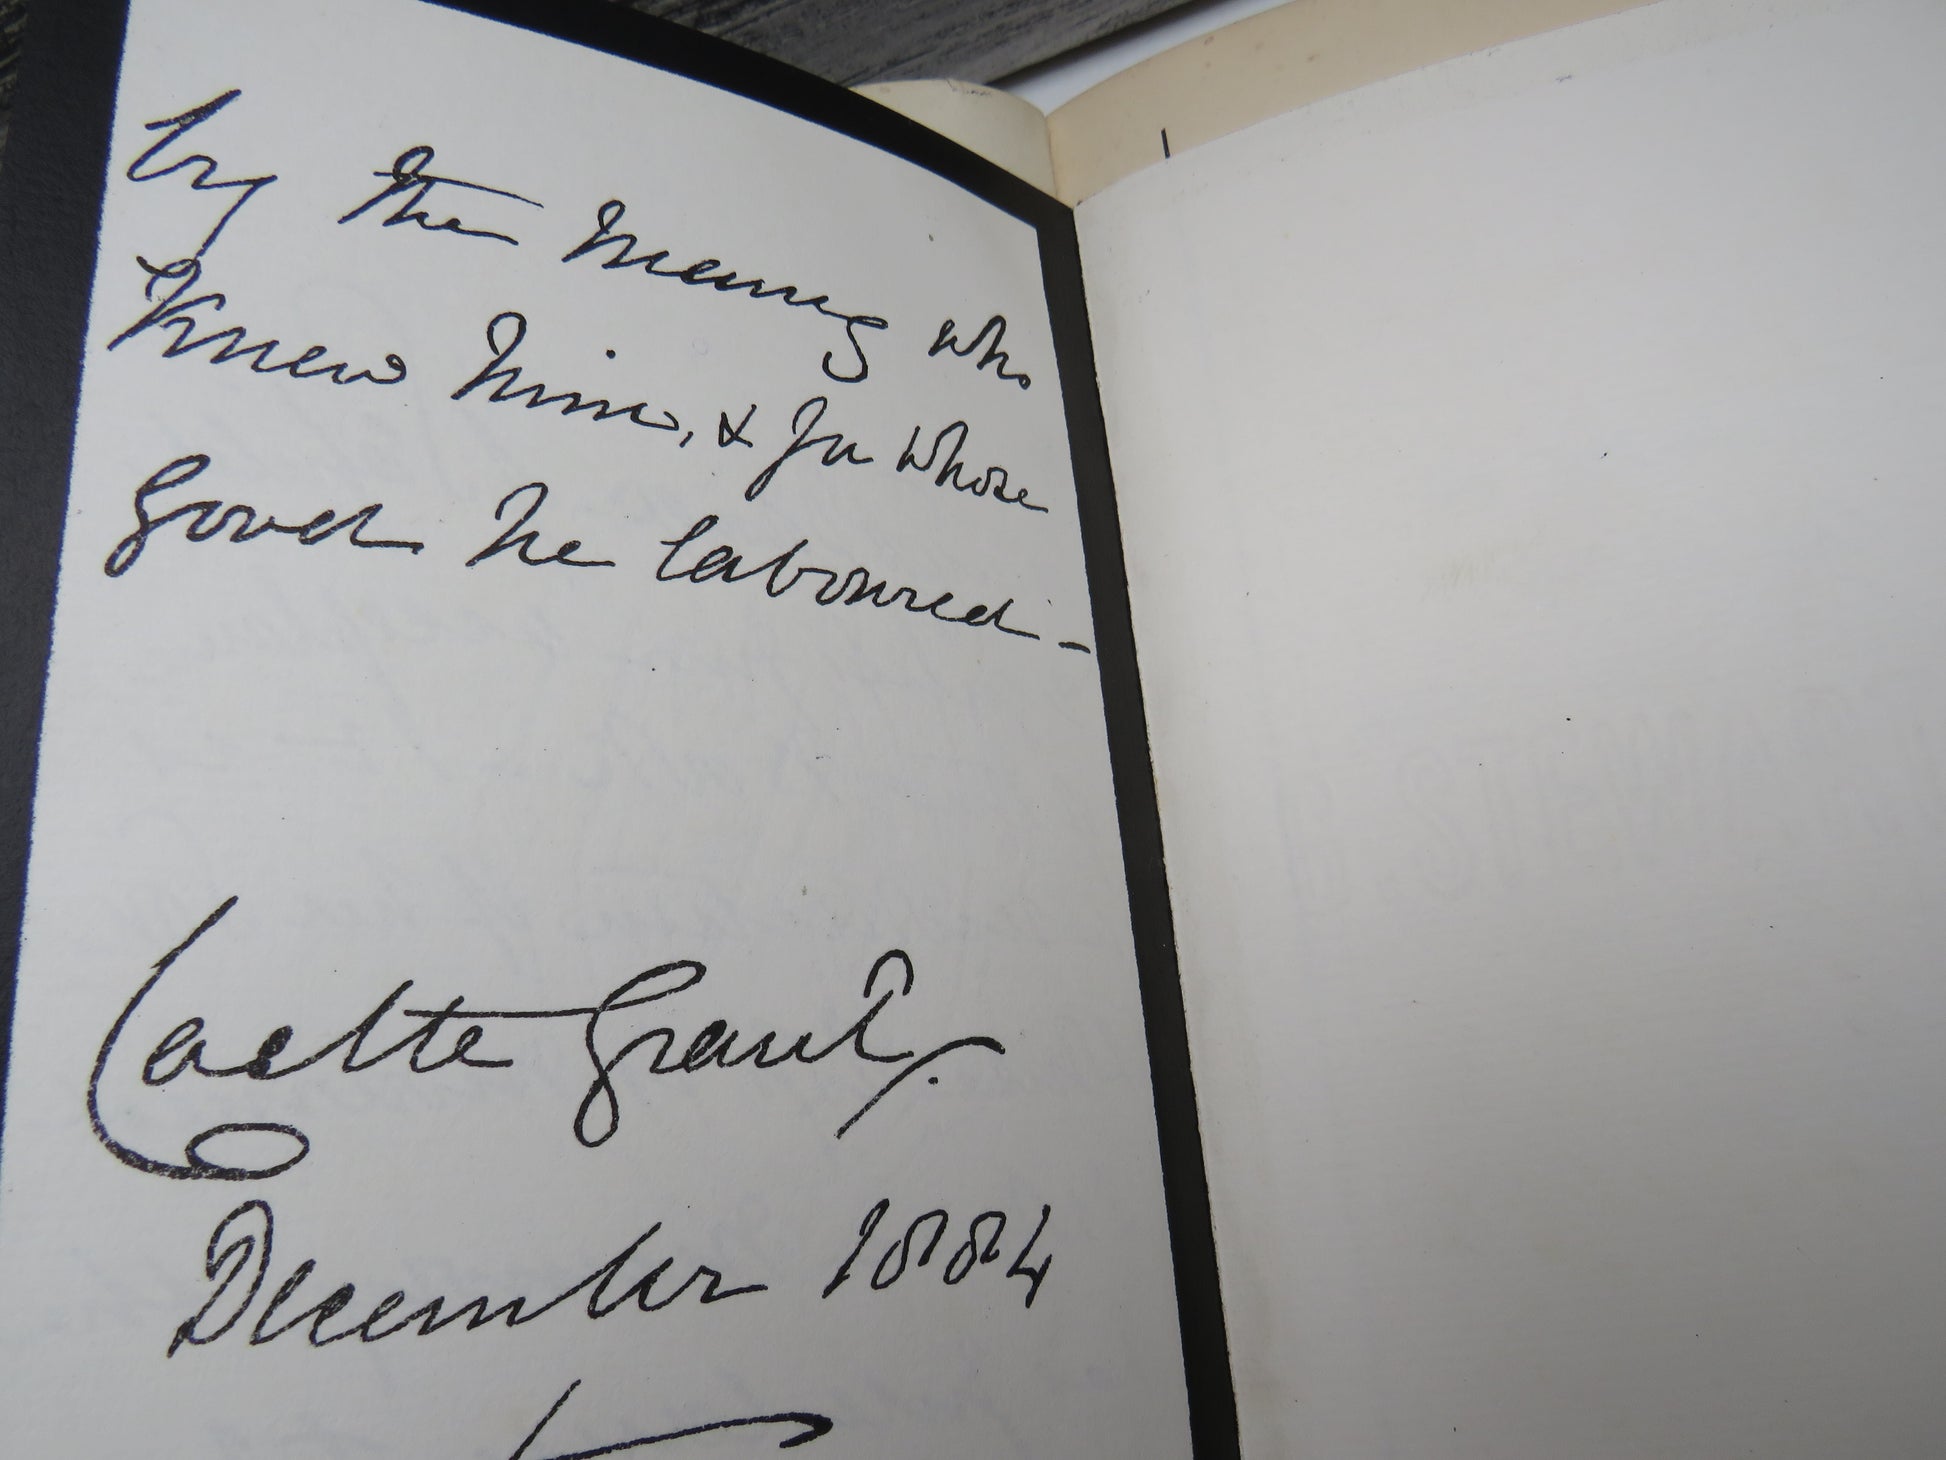 by the many who
knew him, & for whose
good he laboured -
Castle Grant.
December 1884